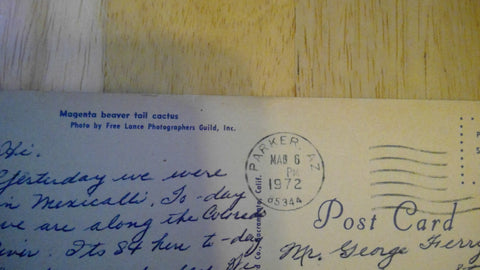 Magenta beaver tail cactus
Photo by Free Lance Photographers Guild, Inc.
PARKER, AZ
MAR 6
PM
1972
85344
Post Card
Hi.
Yesterday we were
in Mexicalli. To-day
we are along the Colorado
River. Its 84 here to-day
Mr. George